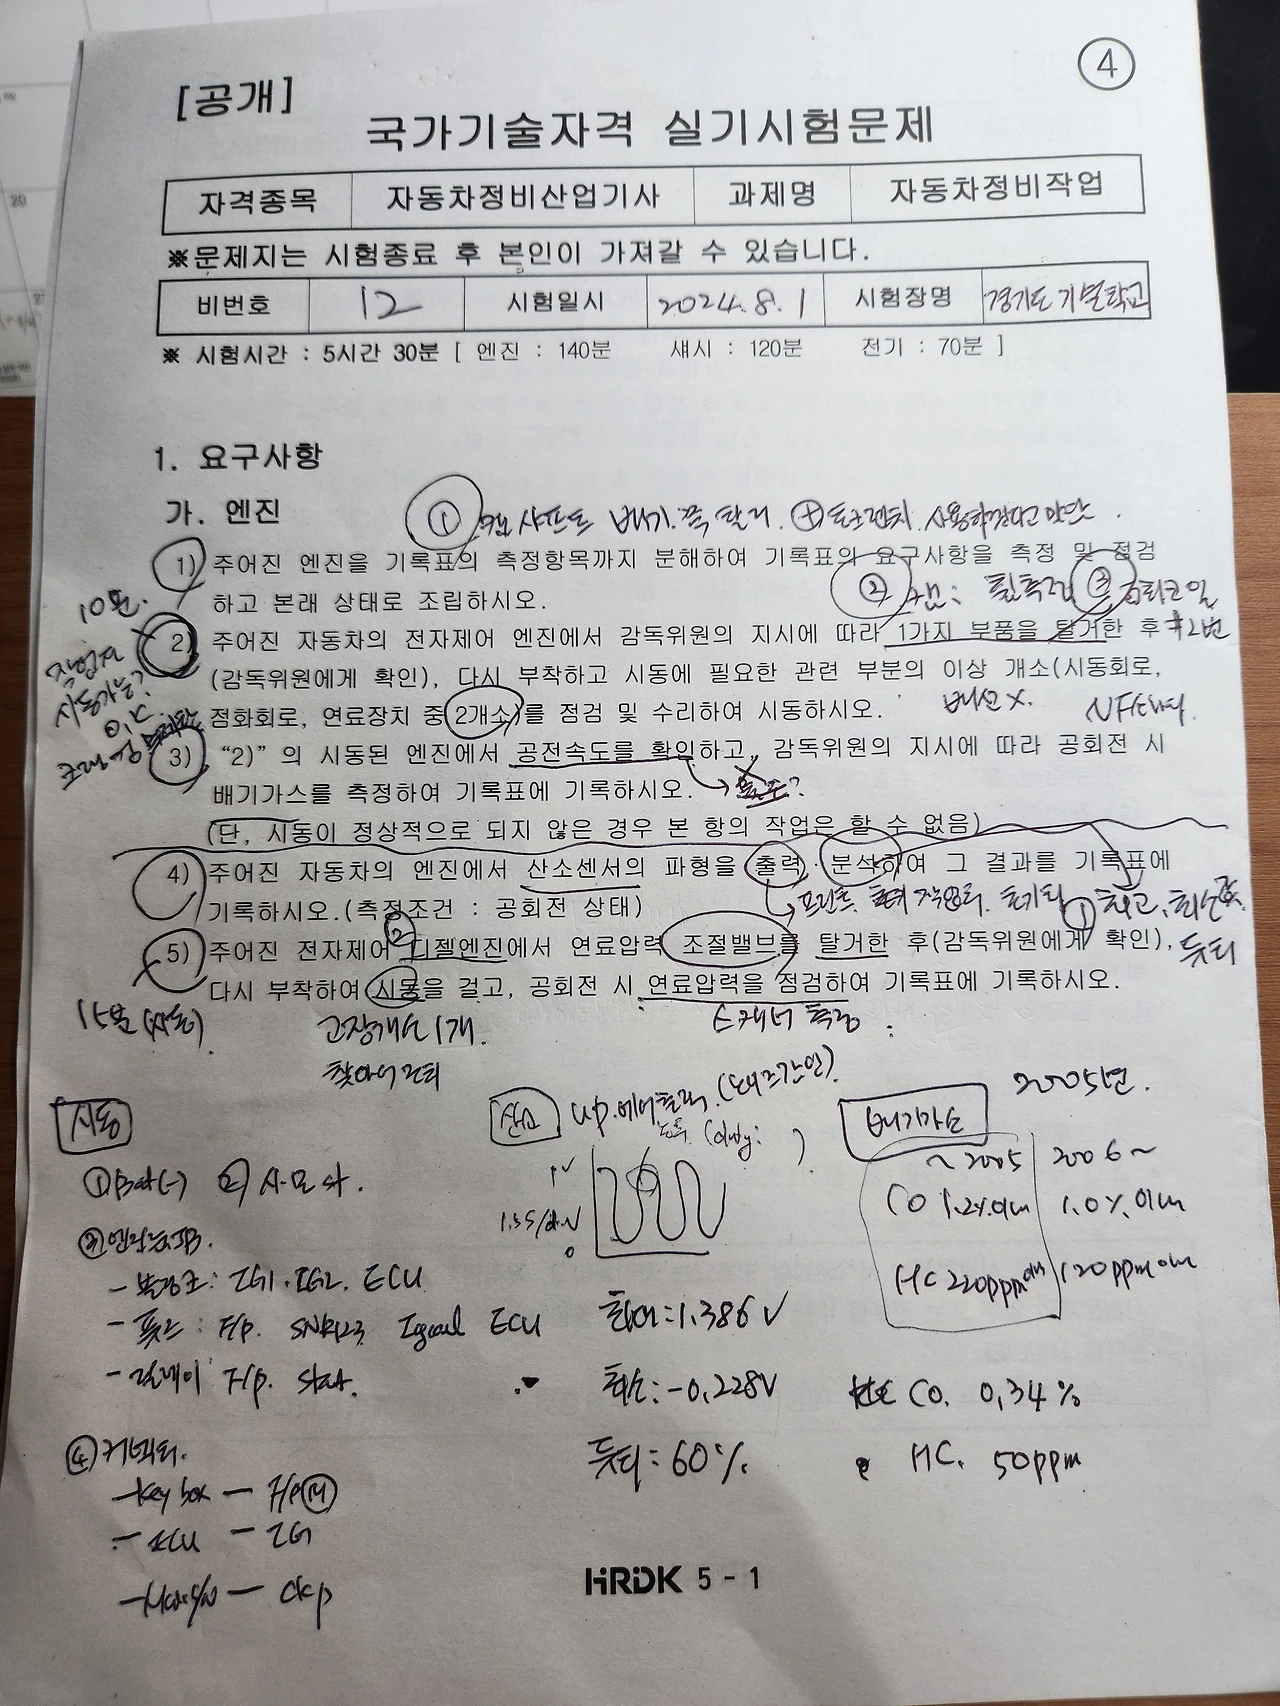 ④
[공개]
국가기술자격 실기시험문제
자격종목 자동차정비산업기사 과제명 자동차정비작업
※문제지는 시험종료 후 본인이 가져갈 수 있습니다.
비번호 12 시험일시 2024.8.1 시험장명 경기도 기별학교
※ 시험시간 : 5시간 30분 [ 엔진 : 140분 섀시 : 120분 전기 : 70분 ]
1. 요구사항
가. 엔진
① 캠 샤프트 배기.쪽 탈거. 토크렌치 사용하겠다고 말단.
1) 주어진 엔진을 기록표의 측정항목까지 분해하여 기록표의 요구사항을 측정 및 점검
하고 본래 상태로 조립하시오.
② 캠: ③ 점화코일
10분.
2) 주어진 자동차의 전자제어 엔진에서 감독위원의 지시에 따라 1가지 부품을 탈거한 후 #2번
(감독위원에게 확인), 다시 부착하고 시동에 필요한 관련 부분의 이상 개소(시동회로,
점화회로, 연료장치 중 2개소)를 점검 및 수리하여 시동하시오. 배선 X.
3) “2)” 의 시동된 엔진에서 공전속도를 확인하고, 감독위원의 지시에 따라 공회전 시
배기가스를 측정하여 기록표에 기록하시오.
(단, 시동이 정상적으로 되지 않은 경우 본 항의 작업은 할 수 없음)
4) 주어진 자동차의 엔진에서 산소센서의 파형을 출력·분석하여 그 결과를 기록표에
기록하시오.(측정조건 : 공회전 상태)
프린트 ① 최고, 최소값
② 듀티
5) 주어진 전자제어 디젤엔진에서 연료압력 조절밸브를 탈거한 후(감독위원에게 확인),
다시 부착하여 시동을 걸고, 공회전 시 연료압력을 점검하여 기록표에 기록하시오.
15분(시동) 고장개소 1개. 스캐너 측정
찾아서 조치
시동
① Bat(-) ② 시.모 st.
③ 엔진룸 JB.
- 볼랑코: IG1. IG2. ECU
- 퓨즈: F/p. SNR123 Igcoil ECU
- 릴레이 F/p. Start.
④ 커넥터.
- Key box - F/p Ⓜ
- ECU - IG
- ckp
산소 up.에어클리너.(노이즈간인).
(duty: )
1V
1.5S/div
0
최대:1.386V
최소:-0.228V
듀티:60%
배기가스 2005년.
~2005 2006~
CO 1.2%이내 1.0%이내
HC 220ppm이내 120ppm이내
CO. 0.34%
HC. 50ppm
HRDK 5 - 1